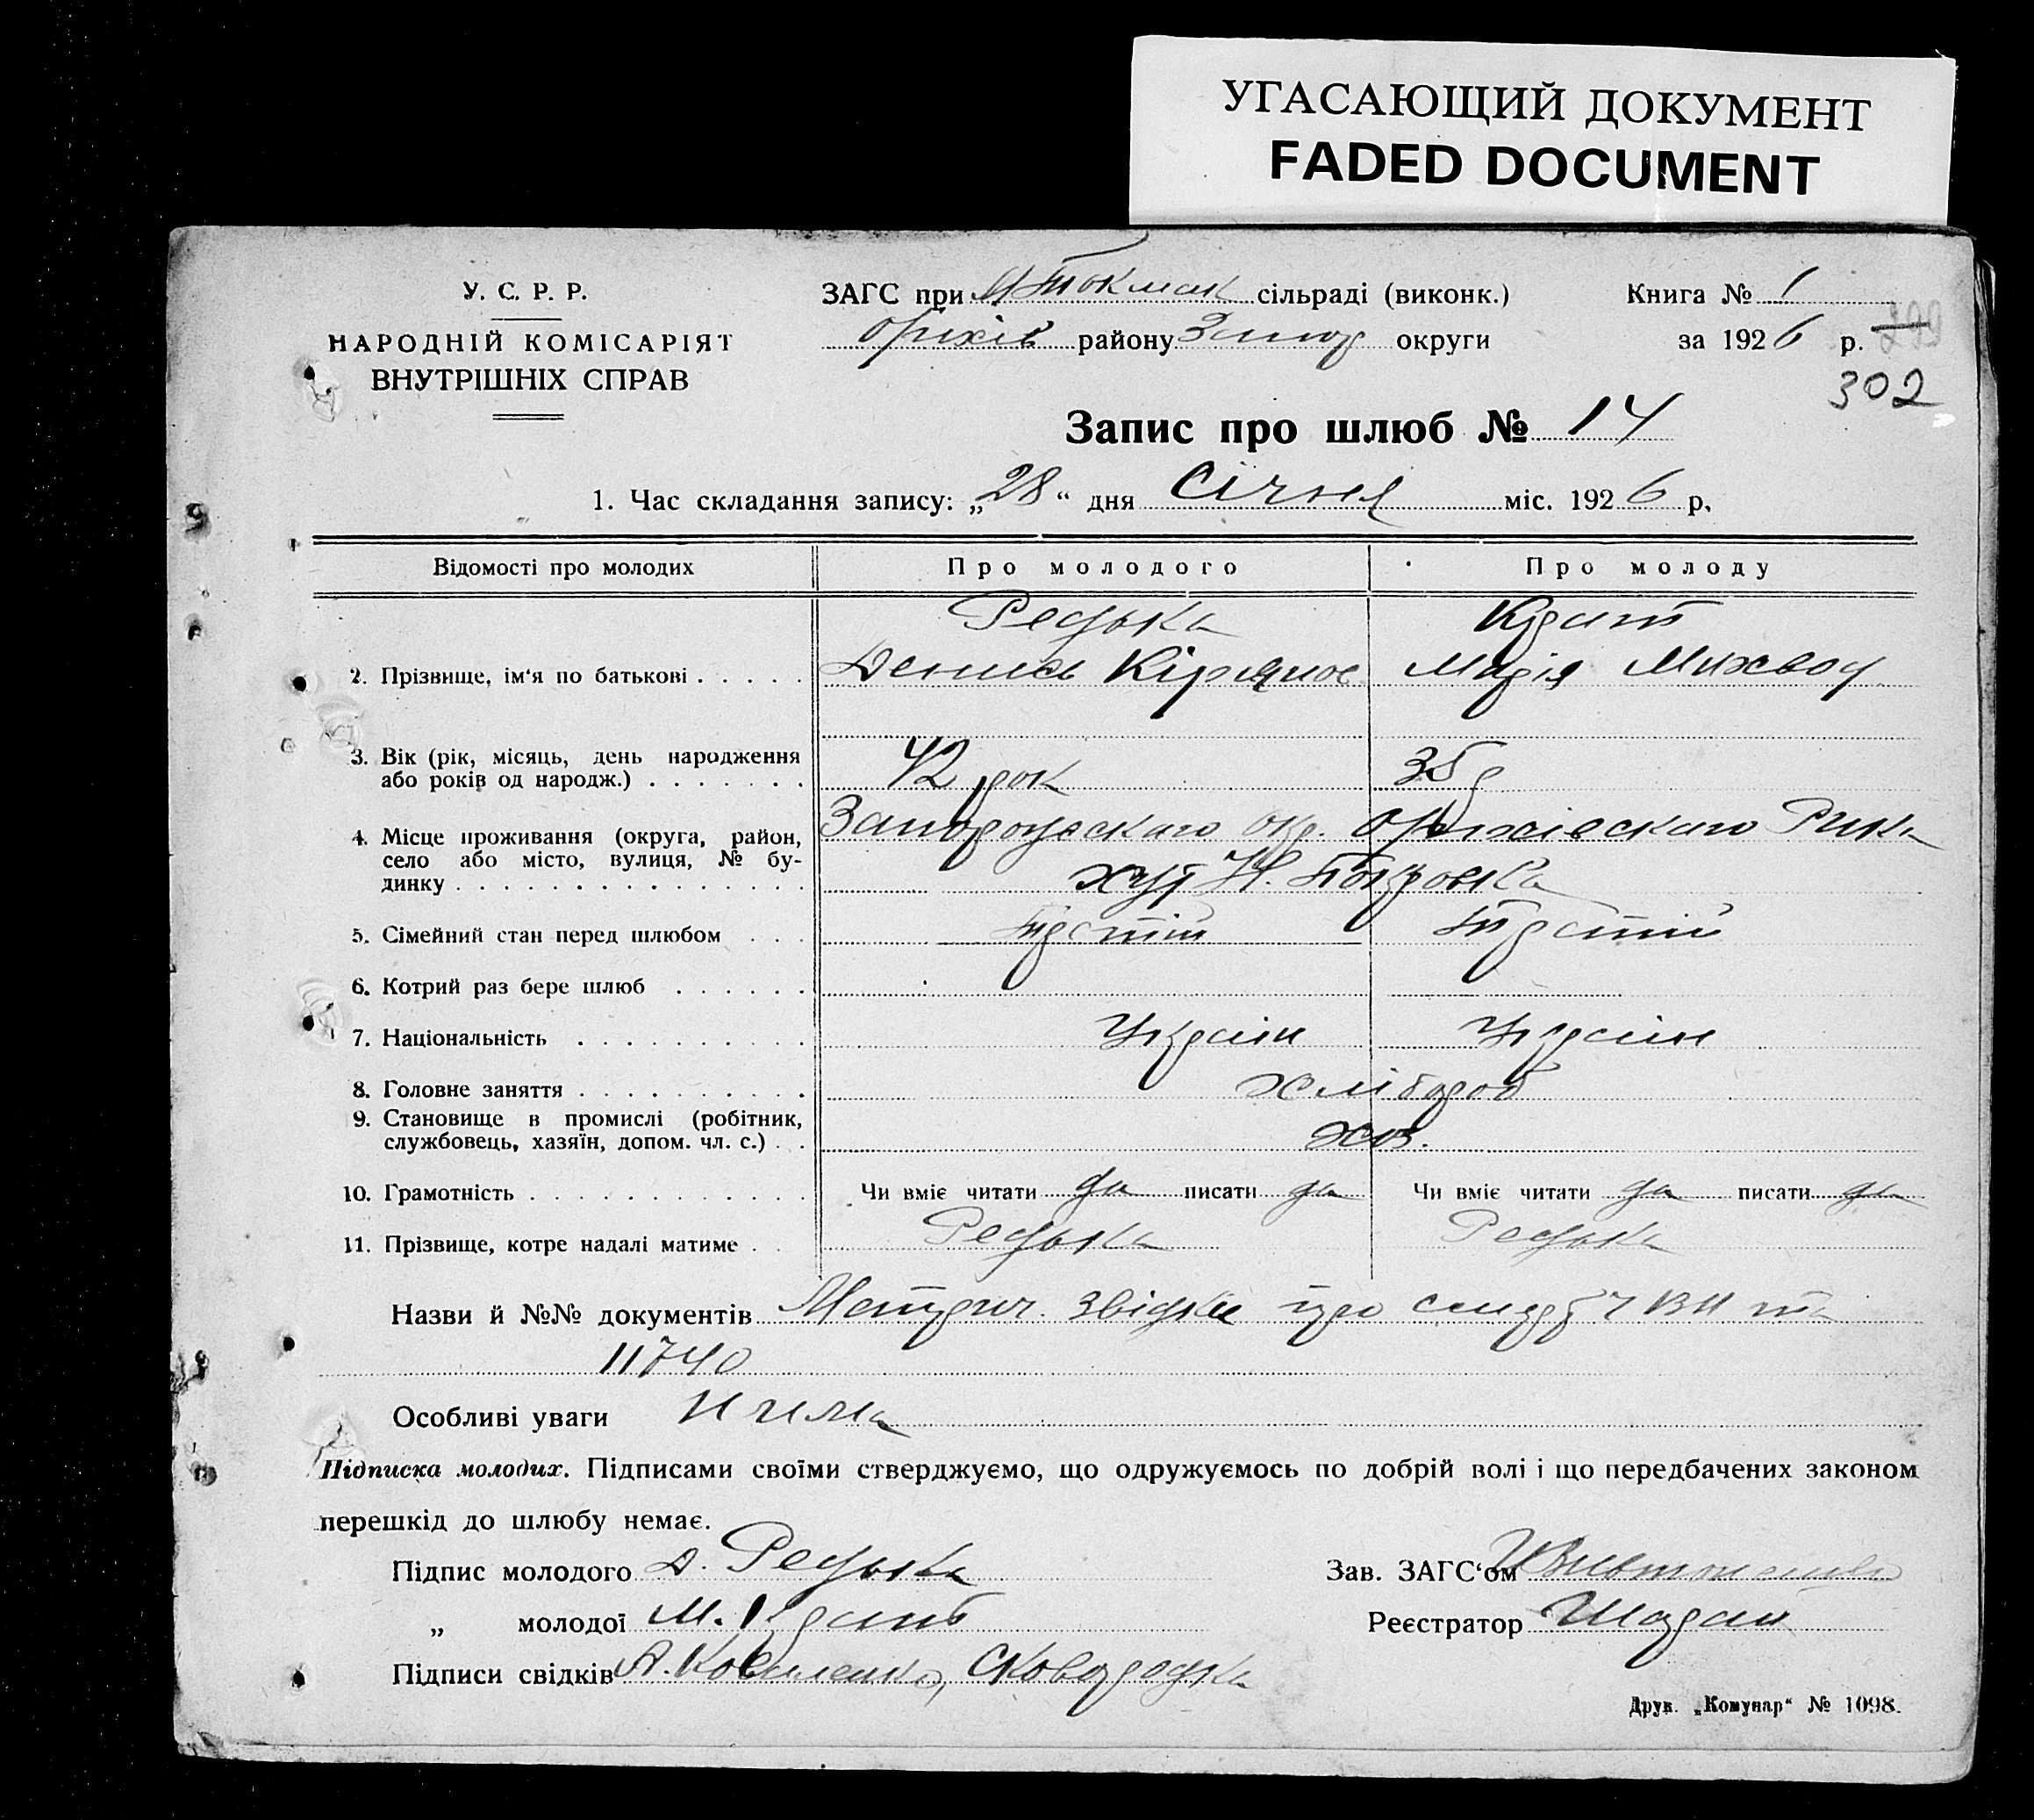 УГАСАЮЩИЙ ДОКУМЕНТ
FADED DOCUMENT
У. С. Р. Р.
НАРОДНІЙ КОМІСАРІЯТ
ВНУТРІШНІХ СПРАВ
ЗАГС при М Токмак сільраді (виконк.)
Оріхів району Запор округи
Книга № 1
за 1926 р.
302
Запис про шлюб № 14
1. Час складання запису: „28“ дня Січня міс. 1926 р.
Відомості про молодих Про молодого Про молоду
Редька Крат
2. Прізвище, ім'я по батькові . . . . . Денись Кірянов Марія
3. Вік (рік, місяць, день народження
або років од народж.) . . . . . . . 42 рок 35 р
4. Місце проживання (округа, район,
село або місто, вулиця, № бу-
динку . . . . . . . . . . . . . . . .
Запорожского окр. Оріхівского Рика
хут Н. Покровка
5. Сімейний стан перед шлюбом . . .
6. Котрий раз бере шлюб . . . . . .
7. Національність . . . . . . . . . . Україн Україн
8. Головне заняття . . . . . . . . . . хлібороб
9. Становище в промислі (робітник,
службовець, хазяїн, допом. чл. с.) . . хоз.
10. Грамотність . . . . . . . . . . . . Чи вміє читати да писати да Чи вміє читати да писати да
11. Прізвище, котре надалі матиме . . Редька Редька
Назви й №№ документів Метрич. звідки про
11740
Особливі уваги Нима
Підписка молодих. Підписами своїми стверджуємо, що одружуємось по добрій волі і що передбачених законом
перешкід до шлюбу немає.
Підпис молодого Д. Редька
„ молодої М. Крат
Підписи свідків А. Коваленко, Сковородка
Зав. ЗАГС'ом
Реєстратор
Друк. „Комунар“ № 1098.